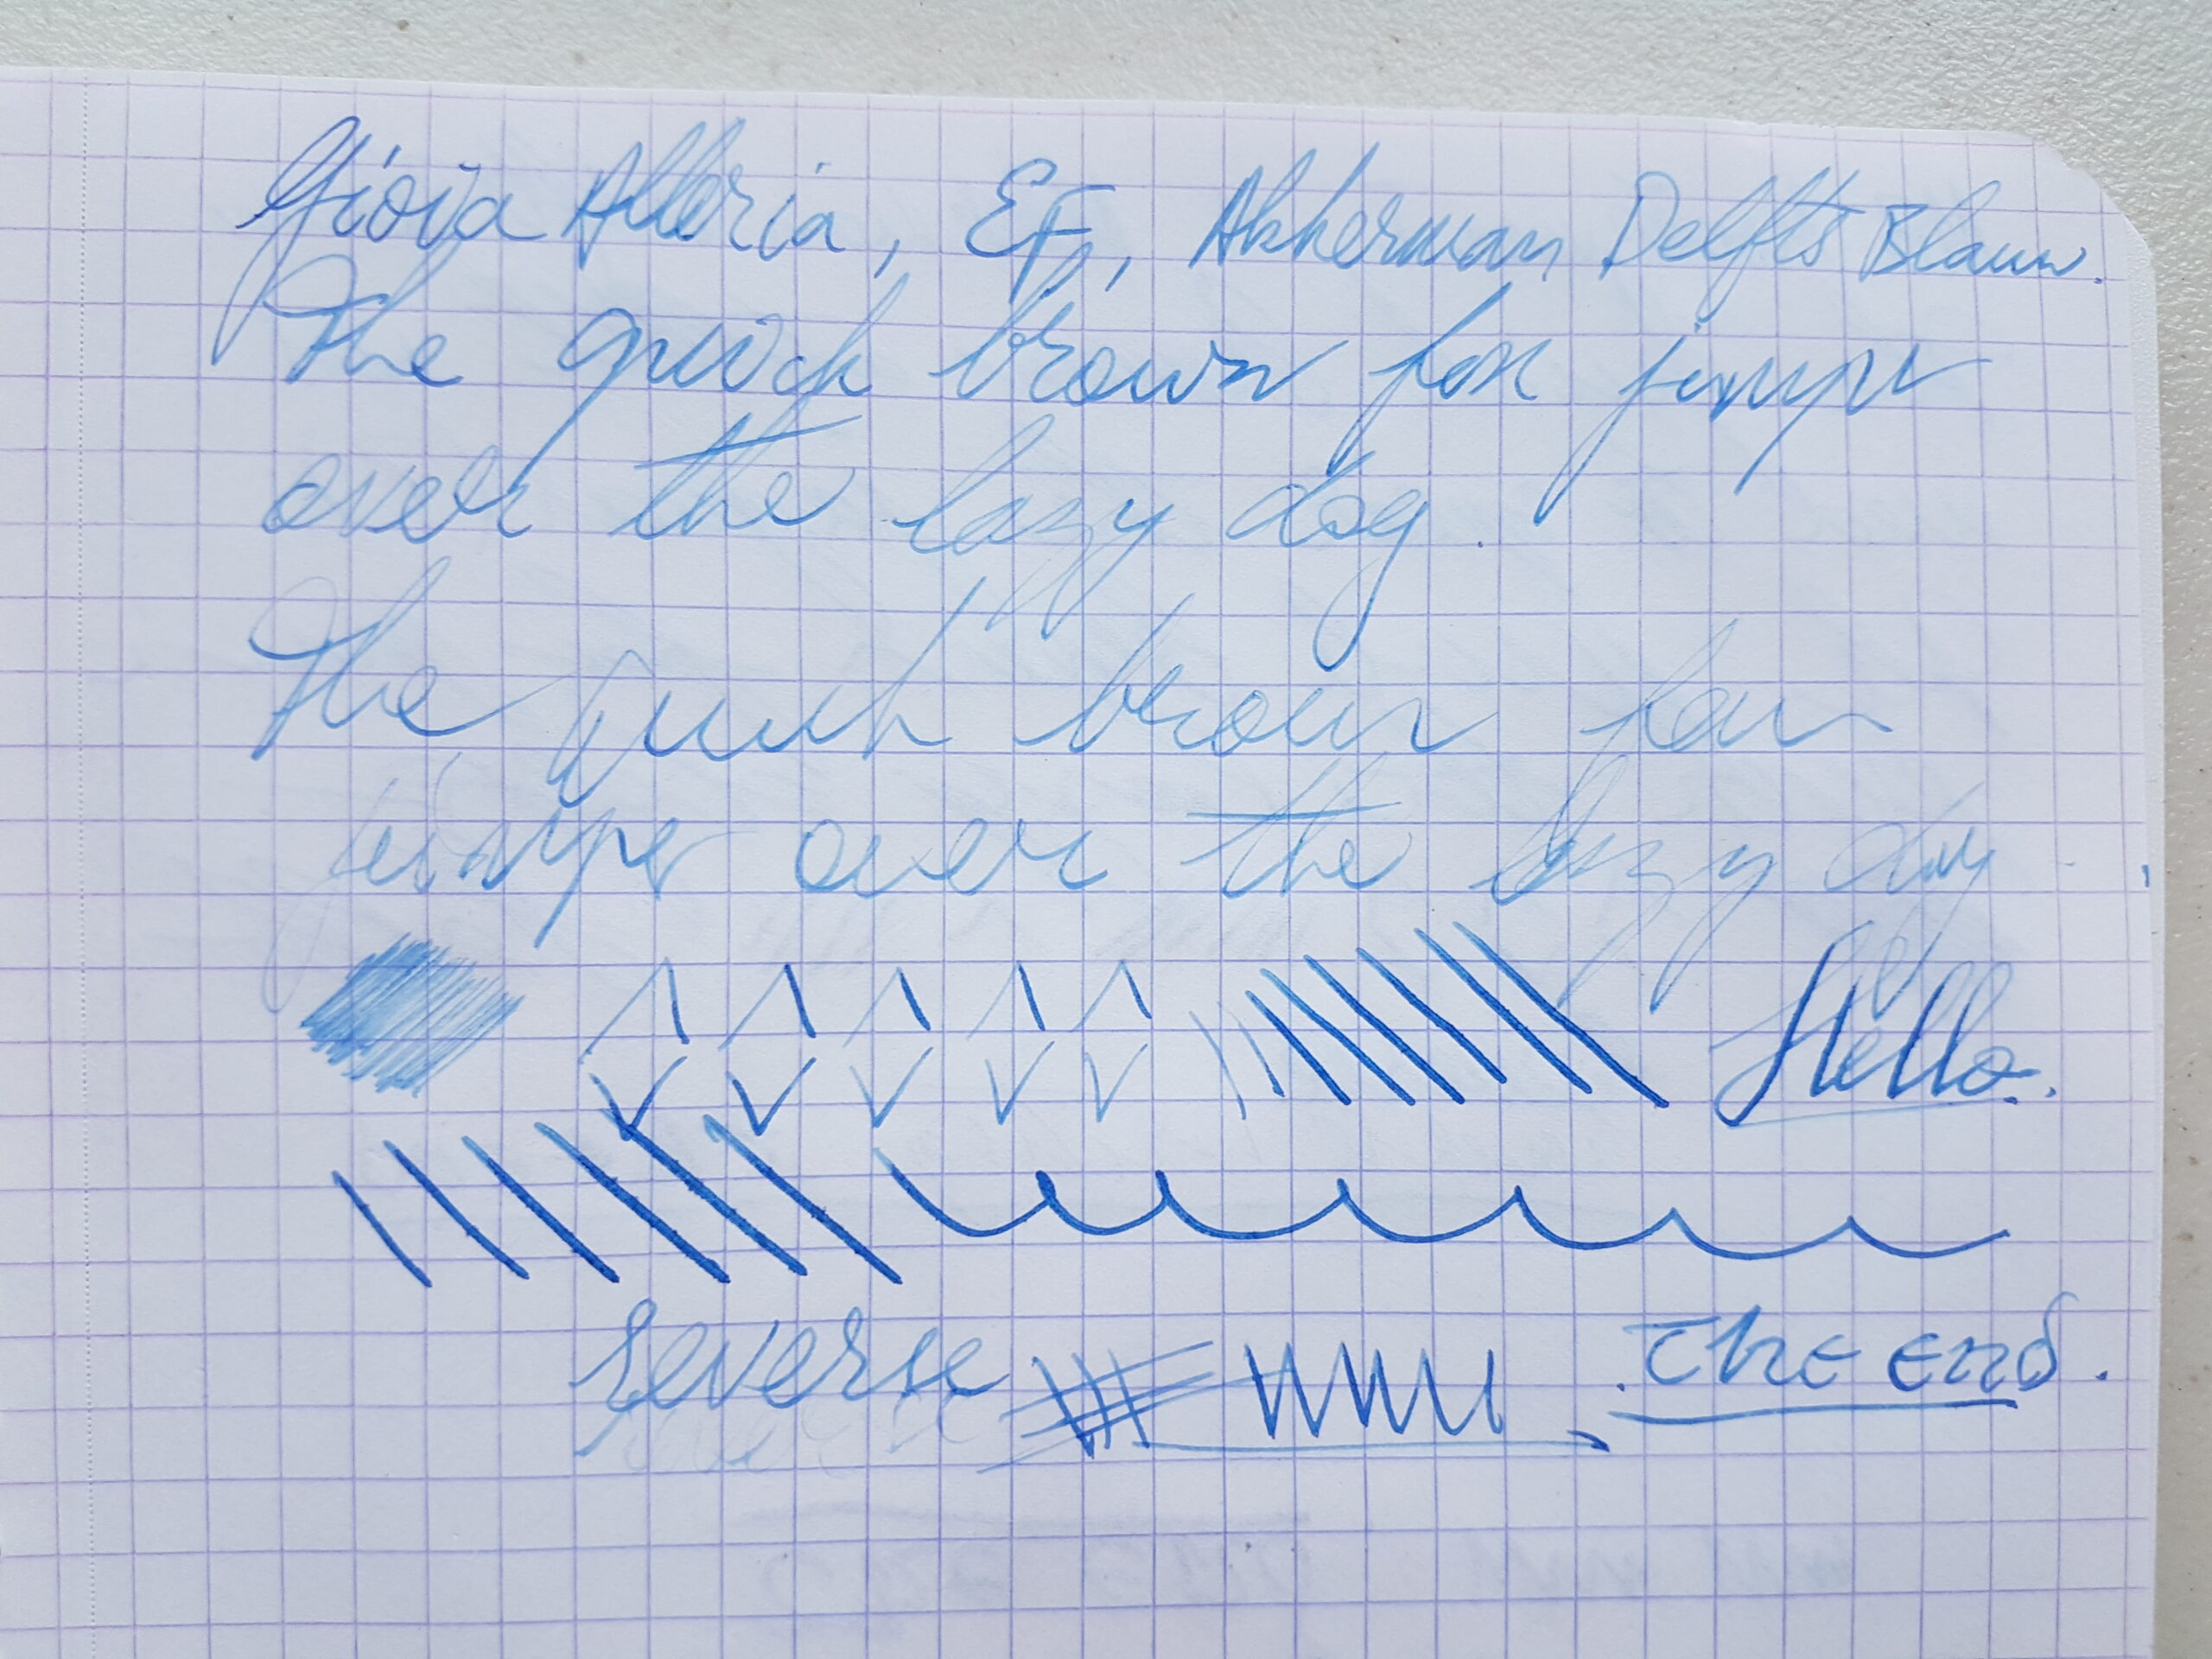 Gioia Alleria, EF, Akkerman Delfts Blauw.
The quick brown fox jumps
over the lazy dog.
The quick brown fox
jumps over the lazy dog.
Hello.
reverse
The end.